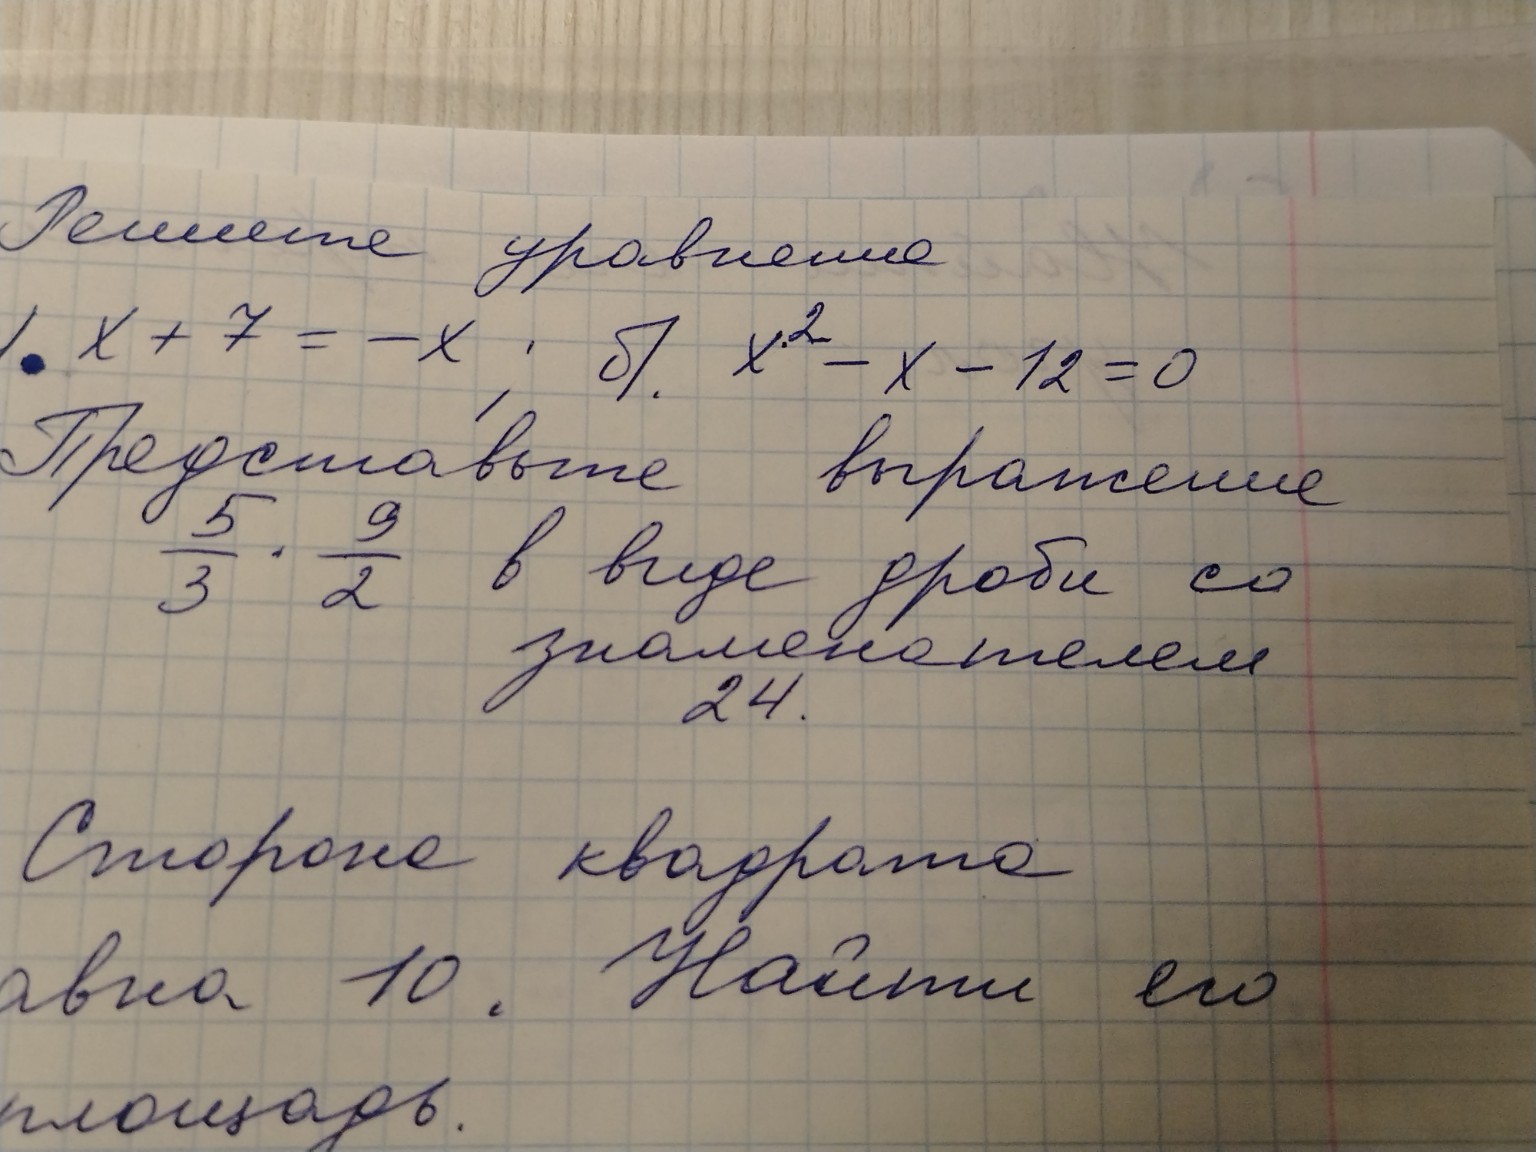 Решите уравнение
1. x + 7 = -x ; б). x² - x - 12 = 0
Представьте выражение
5/3 · 9/2 в виде дроби со
знаменателем
24.
Сторона квадрата
авна 10. Найти его
площадь.